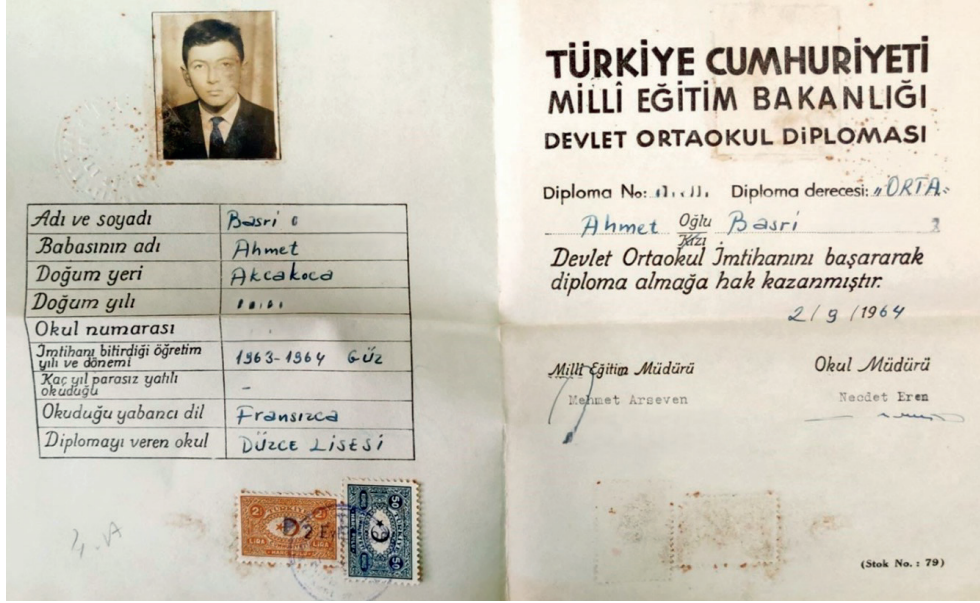 Adı ve soyadı Basri
Babasının adı Ahmet
Doğum yeri Akcakoca
Doğum yılı
Okul numarası
İmtihanı bitirdiği öğretim yılı ve dönemi 1963-1964 GÜZ
Kaç yıl parasız yatılı okuduğu -
Okuduğu yabancı dil Fransızca
Diplomayı veren okul DÜZCE LİSESİ
2 2
LİRA LİRA
50 50
TÜRKİYE CUMHURİYETİ
MİLLÎ EĞİTİM BAKANLIĞI
DEVLET ORTAOKUL DİPLOMASI
Diploma No: Diploma derecesi: "ORTA"
Ahmet Oğlu Kızı Basri
Devlet Ortaokul İmtihanını başararak
diploma almağa hak kazanmıştır.
2/9/1964
Millî Eğitim Müdürü Okul Müdürü
Mehmet Arseven Necdet Eren
(Stok No. : 79)